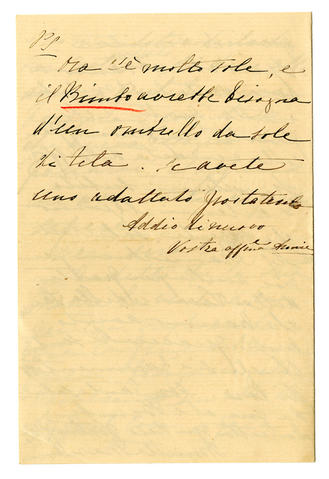 PS
Ora c'è molto sole, e
il Bimbo avrebbe bisogno
d'un ombrello da sole
di tela. Se avete
uno adattato portatelo
Addio di nuovo
Vostra affma Annie